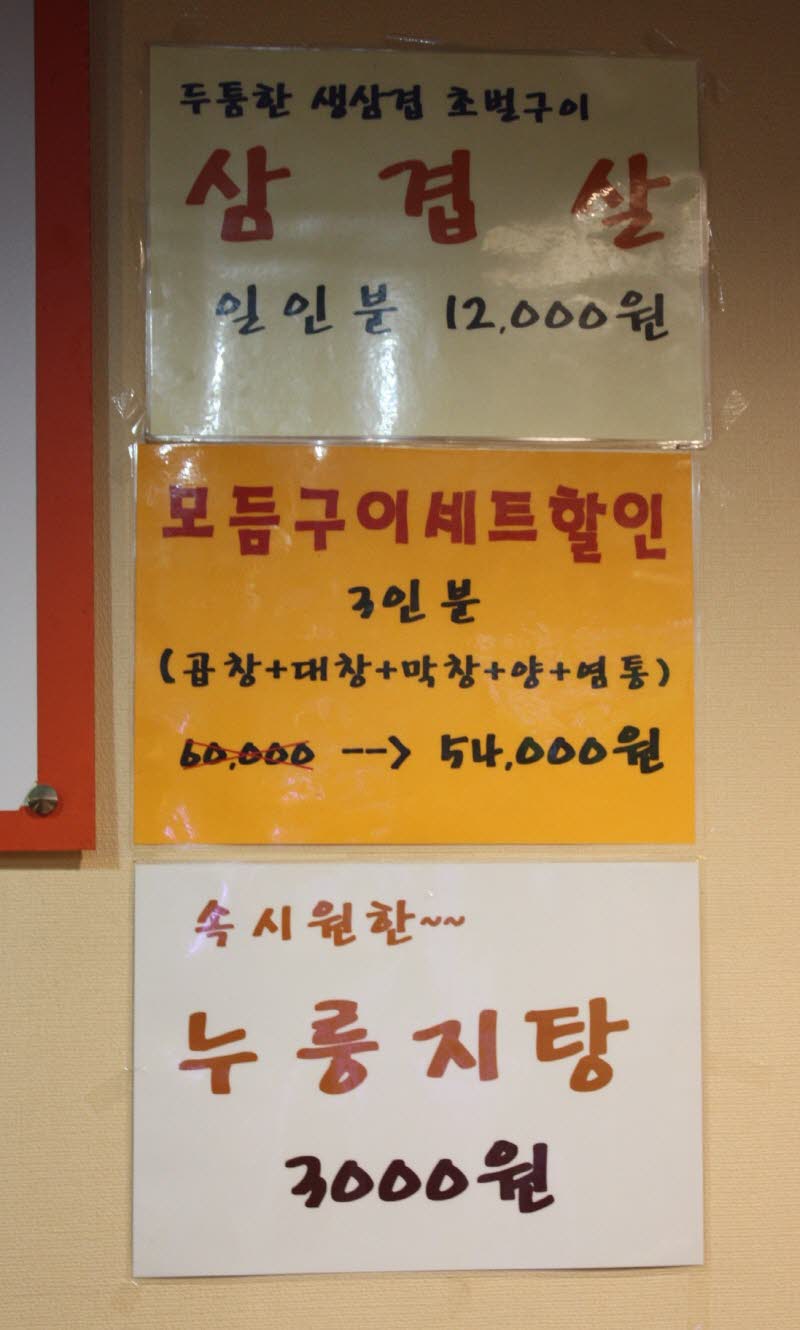 두툼한 생삼겹 초벌구이
삼겹살
일인분 12,000원
모듬구이세트할인
3인분
(곱창+대창+막창+양+염통)
60,000 --> 54,000원
속시원한~~
누룽지탕
3000원